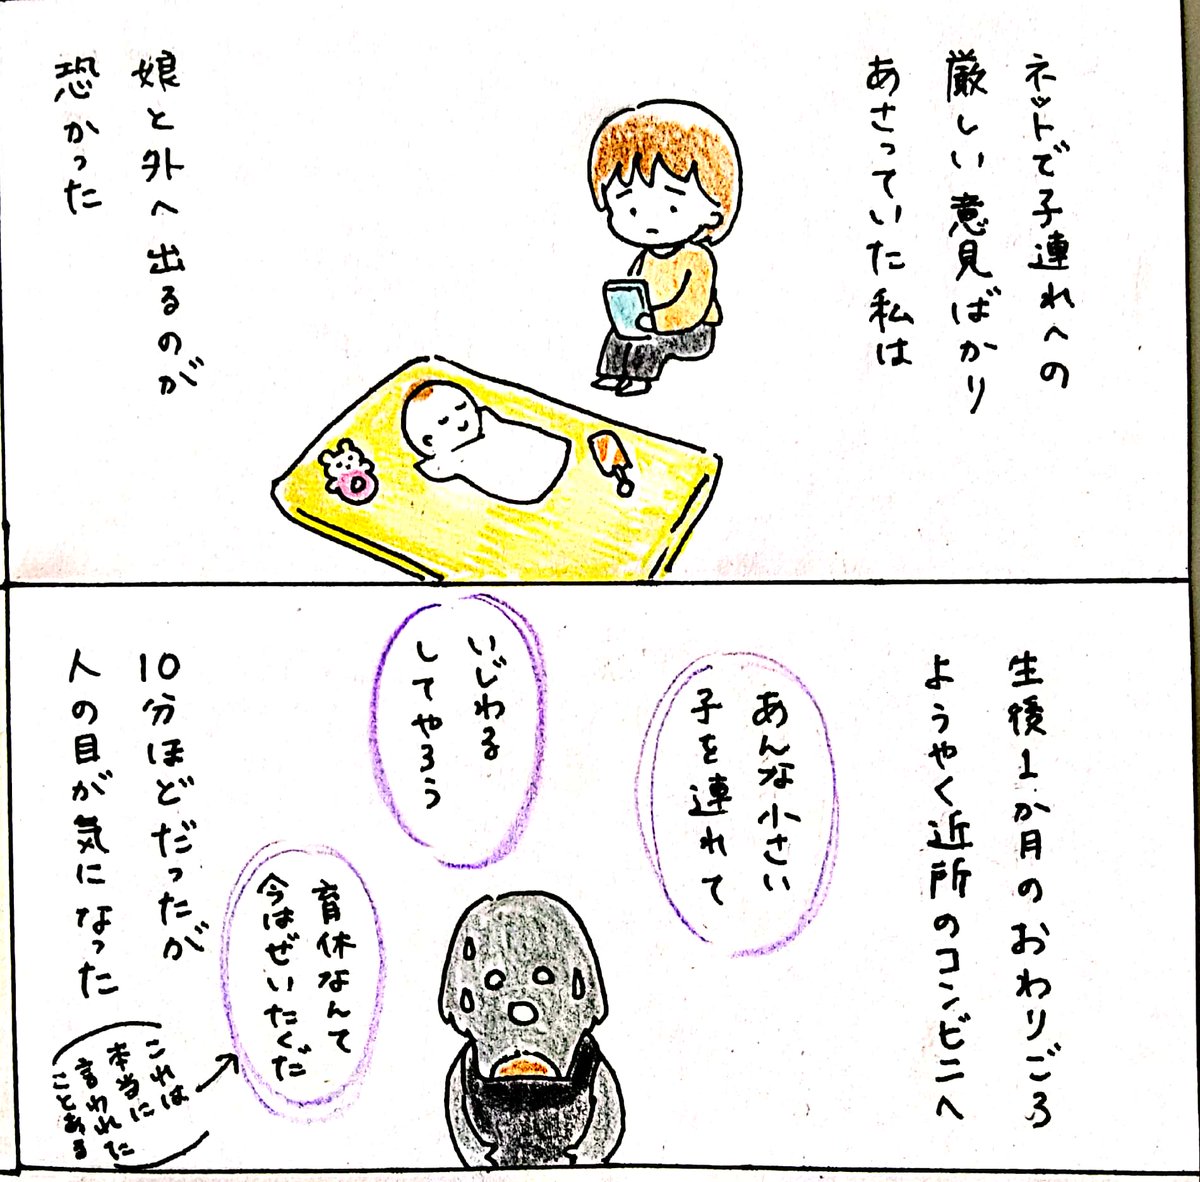 ネットで子連れへの
厳しい意見ばかり
あさっていた私は
娘と外へ出るのが
恐かった
生後1か月のおわりごろ
ようやく近所のコンビニへ
あんな小さい
子を連れて
いじわる
してやろう
育休なんて
今はぜいたくだ
10分ほどだったが
人の目が気になった
これは
本当に
言われた
ことある